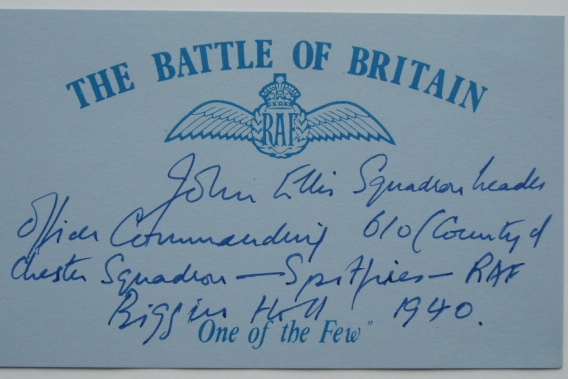 THE BATTLE OF BRITAIN
RAF
John Ellis Squadron Leader
Officer Commanding 610 (County of
Chester Squadron — Spitfires — RAF
Biggin Hill 1940.
"One of the Few"